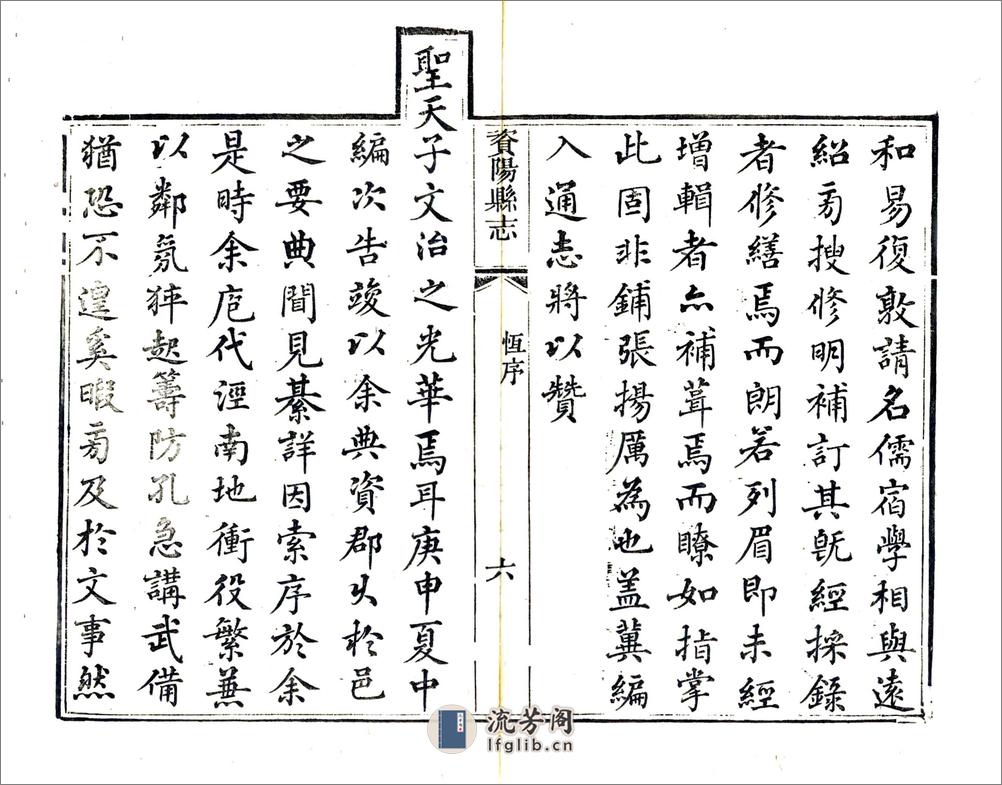 和易復敦請名儒宿學相與遠
紹旁搜修明補訂其旣經採錄
者修繕焉而朗若列眉即未經
增輯者亦補葺焉而瞭如指掌
此固非鋪張揚厲為也盖冀編
入通志將以贊
資陽縣志
恆序
六
聖天子文治之光華焉耳庚申夏中
編次告竣以余典資郡久於邑
之要典聞見綦詳因索序於余
是時余庖代涇南地衝役繁兼
以鄰氛狂起籌防孔急講武備
猶恐不遑奚暇旁及於文事然
流芳阁
lfglib.cn